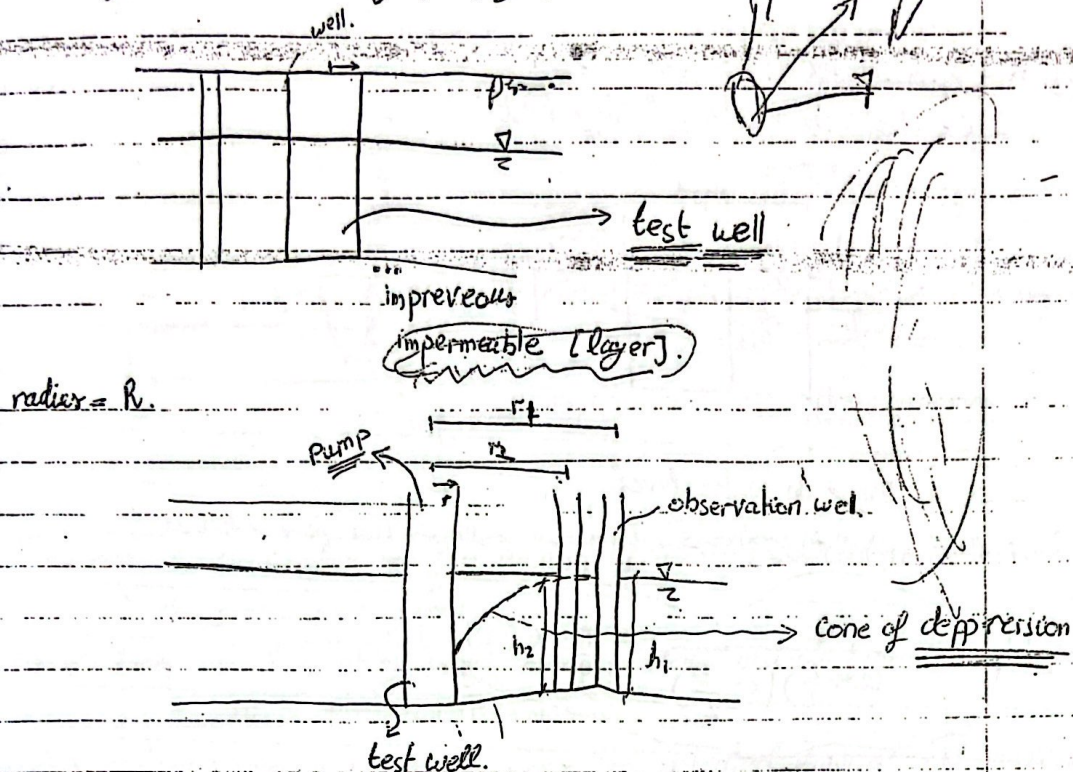 well.
test well
impreveous
impermeable [layer].
radius = R.
r1
r2
pump
r
observation wel.
h2
h1
cone of deppression
test well.